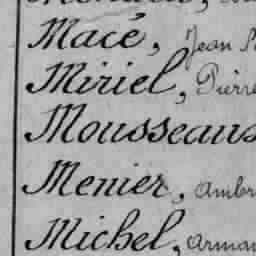 Macé, Jean
Miriel, Pierre
Mousseaus
Menier, Ambr
Michel, Arman